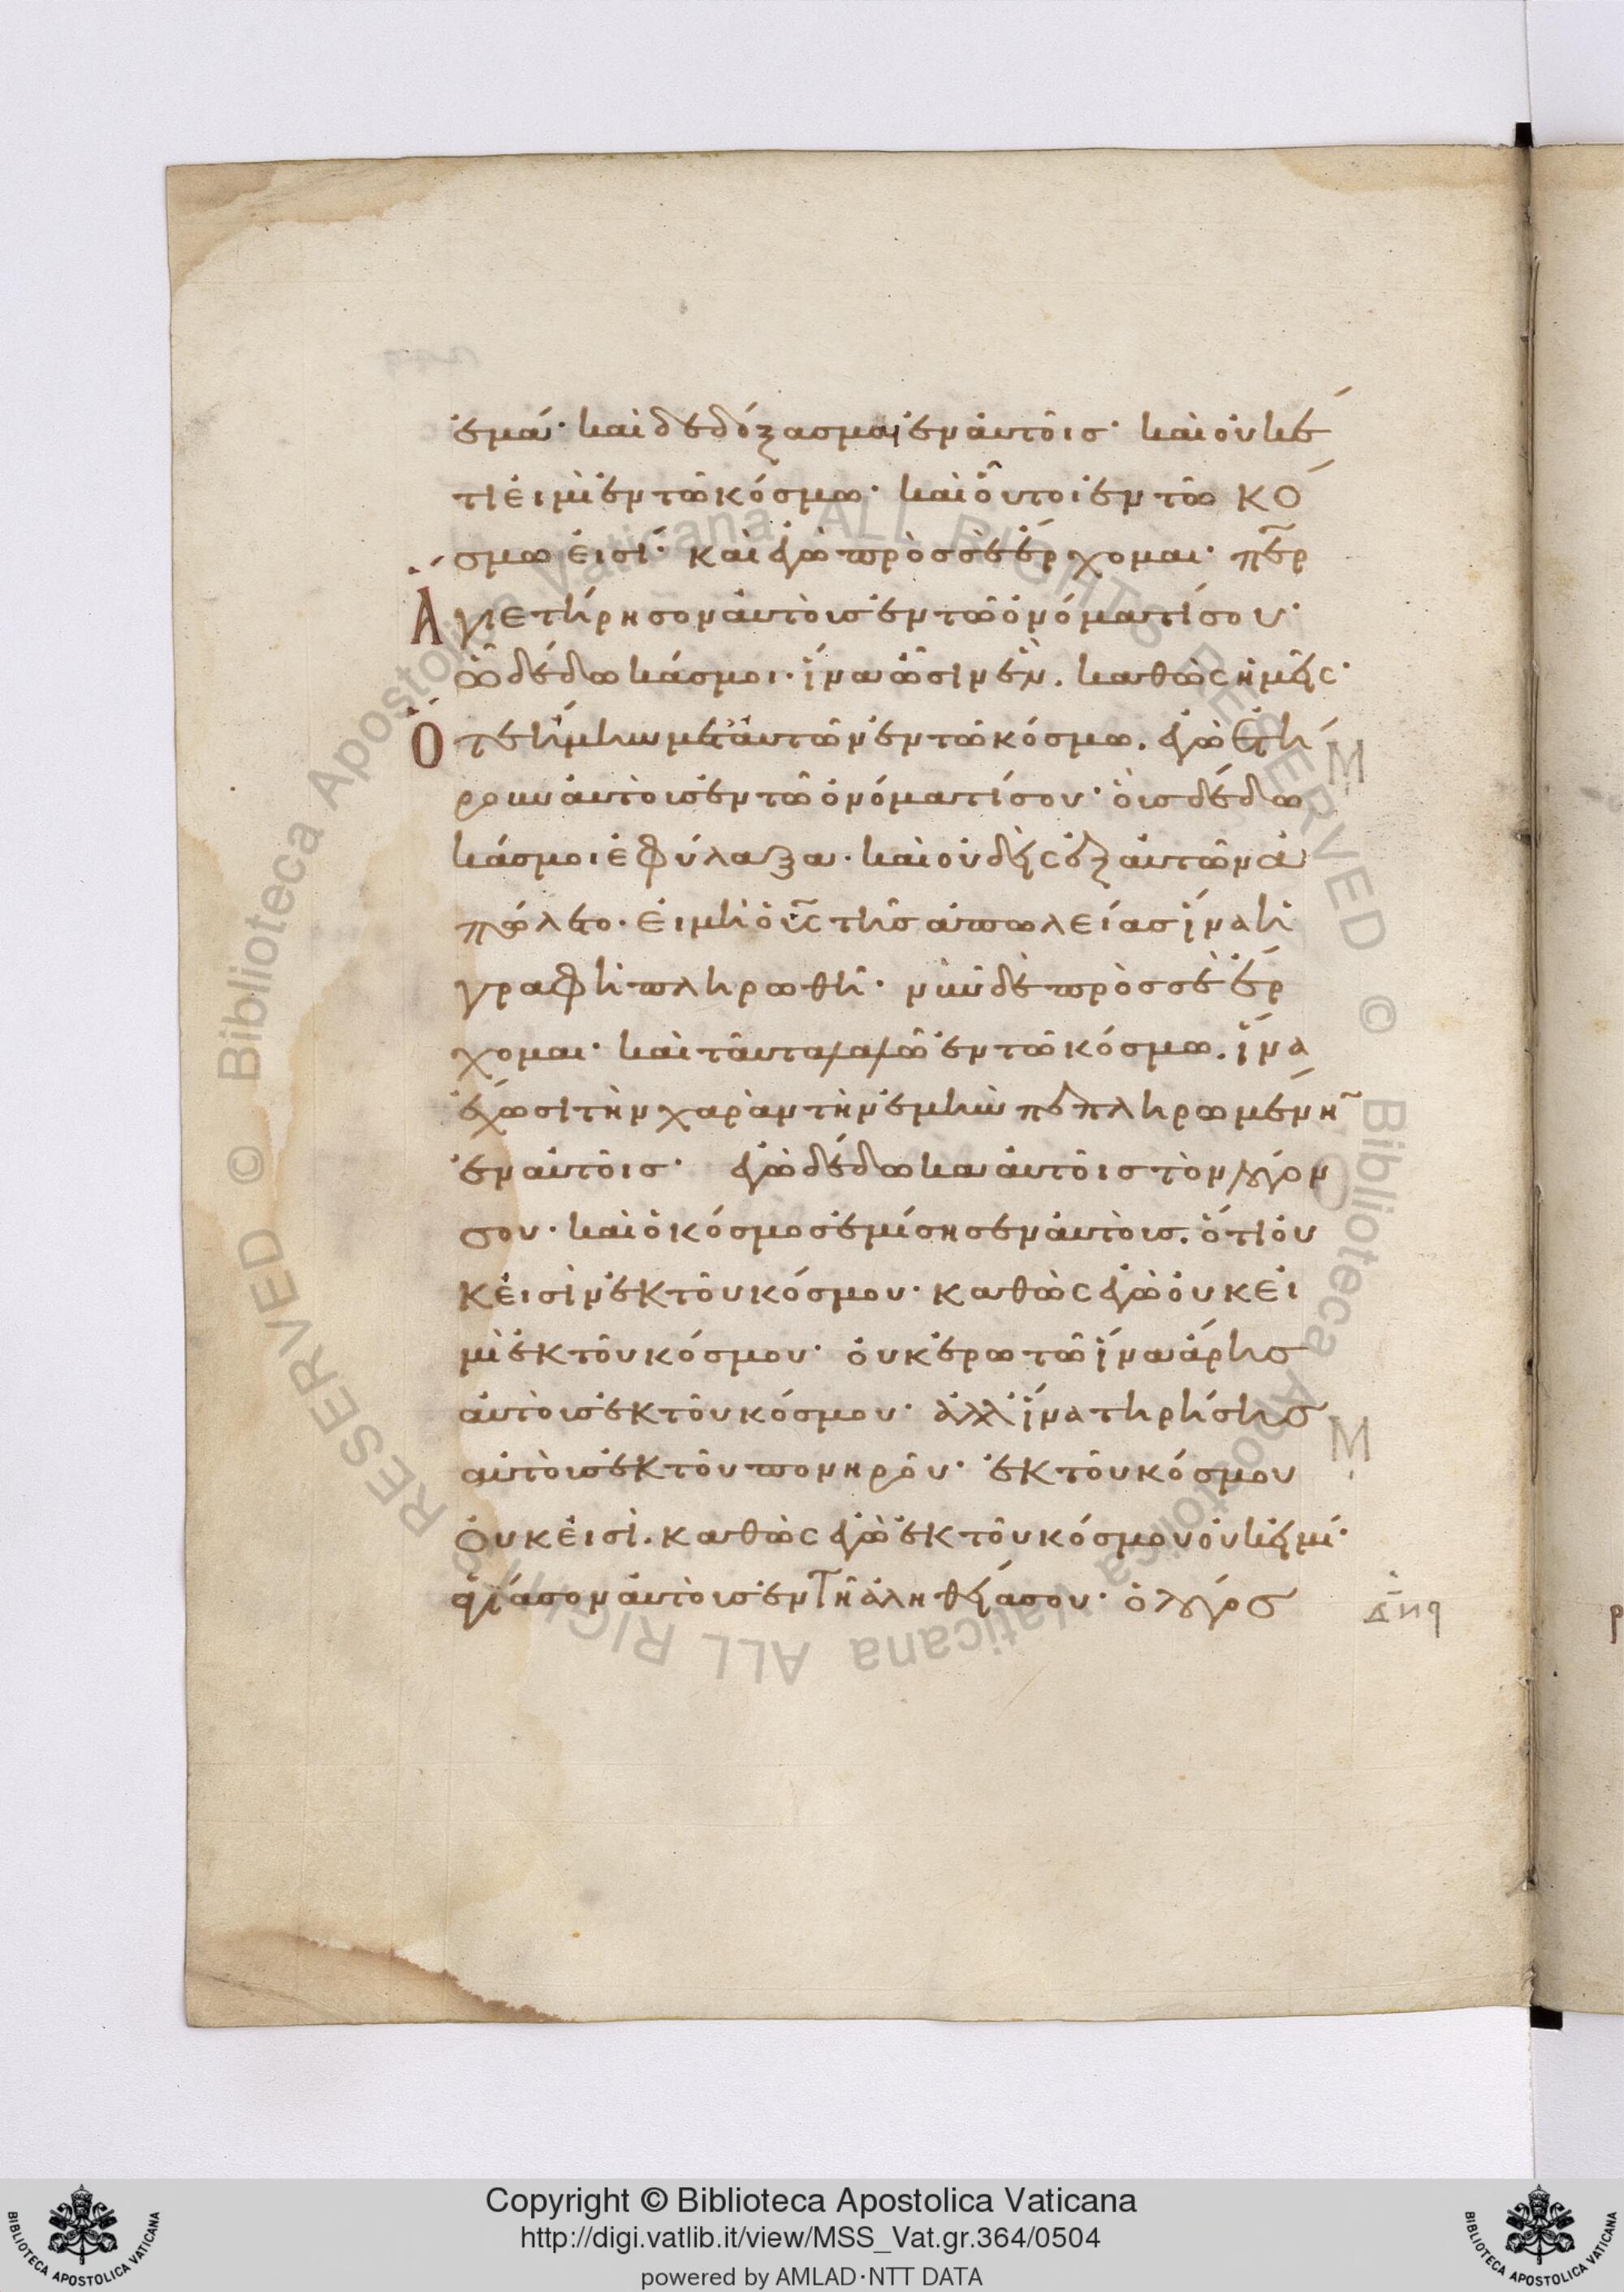 ἐμά· καὶ δεδόξασμαι ἐν αὐτοῖς· καὶ οὐκέ
τι εἰμὶ ἐν τῶ κόσμω· καὶ οὗτοι ἐν τῶ κό
σμω εἰσί· καὶ ἐγὼ πρὸς σὲ ἔρχομαι· π̅ερ
Ἅγιε τήρησον αὐτοὺς ἐν τῶ ὀνόματί σου·
ὧ δέδωκάς μοι· ἵνα ὦσιν ἕν. καθὼς ἡμεῖς·
Ὅτε ἤμην μετ' αὐτῶν ἐν τῶ κόσμω. ἐγὼ ἐτή
ρουν αὐτοὺς ἐν τῶ ὀνόματί σου· οὓς δέδω
κάς μοι ἐφύλαξα. καὶ οὐδεὶς ἐξ αὐτῶν ἀ
πώλετο. εἰ μὴ ὁ υ̅ς τῆς ἀπωλείας ἵνα ἡ
γραφὴ πληρωθῆ· νῦν δὲ πρὸς σὲ ἔρ
χομαι· καὶ ταῦτα λαλῶ ἐν τῶ κόσμω. ἵνα
ἔχωσι τὴν χαρὰν τὴν ἐμὴν πεπληρωμένη̅
ἐν αὐτοῖς· ἐγὼ δέδωκα αὐτοῖς τὸν λόγον
σου· καὶ ὁ κόσμος ἐμίσησεν αὐτούς. ὅτι οὐ
κ εἰσὶν ἐκ τοῦ κόσμου· καθὼς ἐγὼ οὐκ εἰ
μὶ ἐκ τοῦ κόσμου· οὐκ ἐρωτῶ ἵνα ἄρης
αὐτοὺς ἐκ τοῦ κόσμου· ἀλλ' ἵνα τηρήσης
αὐτοὺς ἐκ τοῦ πονηροῦ· ἐκ τοῦ κόσμου
οὐκ εἰσὶ. καθὼς ἐγὼ ἐκ τοῦ κόσμου οὐκ εἰμί·
ἁγίασον αὐτοὺς ἐν τῆ ἀληθείᾳ σου· ὁ λόγος
Copyright © Biblioteca Apostolica Vaticana
http://digi.vatlib.it/view/MSS_Vat.gr.364/0504
powered by AMLAD·NTT DATA
BIBLIOTECA APOSTOLICA VATICANA
BIBLIOTECA APOSTOLICA VATICANA